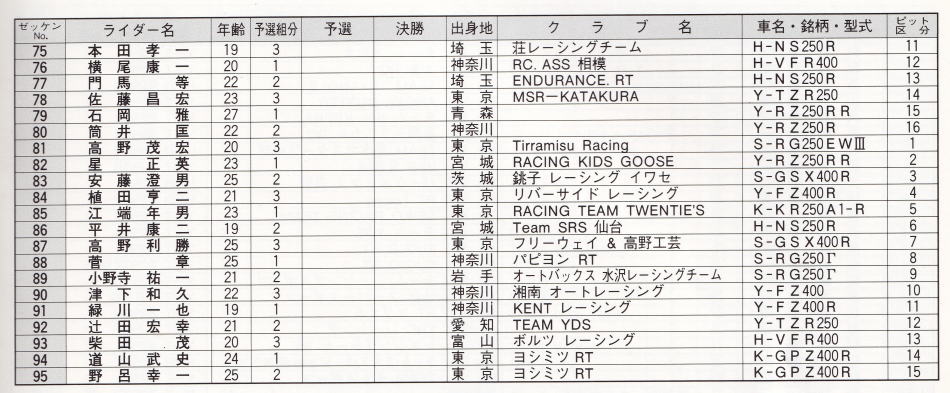 ゼッケンNo. ライダー名 年齢 予選組分 予選 決勝 出身地 クラブ名 車名・銘柄・型式 ピット区分
75 本田孝一 19 3 埼玉 荘レーシングチーム H-NS250R 11
76 横尾康一 20 1 神奈川 RC. ASS 相模 H-VFR400 12
77 門馬等 22 2 埼玉 ENDURANCE. RT H-NS250R 13
78 佐藤昌宏 23 3 東京 MSR-KATAKURA Y-TZR250 14
79 石岡雅 27 1 青森 Y-RZ250RR 15
80 筒井匡 22 2 神奈川 Y-RZ250R 16
81 高野茂宏 20 3 東京 Tirramisu Racing S-RG250EWⅢ 1
82 星正英 23 1 宮城 RACING KIDS GOOSE Y-RZ250RR 2
83 安藤澄男 25 2 茨城 銚子レーシング イワセ S-GSX400R 3
84 植田亨二 21 3 東京 リバーサイド レーシング Y-FZ400R 4
85 江端年男 23 1 東京 RACING TEAM TWENTIE'S K-KR250A1-R 5
86 平井康二 19 2 宮城 Team SRS 仙台 H-NS250R 6
87 高野利勝 25 3 東京 フリーウェイ & 高野工芸 S-GSX400R 7
88 菅章 25 1 神奈川 パピヨン RT S-RG250Γ 8
89 小野寺祐一 21 2 岩手 オートバックス 水沢レーシングチーム S-RG250Γ 9
90 津下和久 22 3 神奈川 湘南 オートレーシング Y-FZ400 10
91 緑川一也 19 1 神奈川 KENT レーシング Y-FZ400R 11
92 辻田宏幸 21 2 愛知 TEAM YDS Y-TZR250 12
93 柴田茂 20 3 富山 ボルツ レーシング H-VFR400 13
94 道山武史 24 1 東京 ヨシミツ RT K-GPZ400R 14
95 野呂幸一 25 2 東京 ヨシミツ RT K-GPZ400R 15